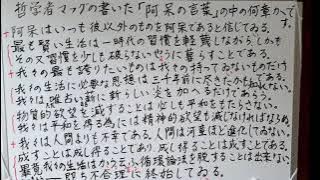 哲学者マッグの書いた「阿呆の言葉」の中の何章かです。
+阿呆はいつも彼以外のものを阿呆であると信じてゐる。
最も賢い生活は一時代の習慣を軽蔑しながら、しかも
その又習慣を少しも破らないやうに暮らすことである。
我々の最も誇りたいものは我々の持ってゐないものだけ
+我々の生活に必要な思想は三千年前に尽きたかもしれない。
我々は唯古い薪に新らしい炎を加へるだけであらう
物質的欲望を減ずることは必しも平和をもたらさない。
我々は平和を得る為には精神的欲望も減じなければならぬ
+我々は人間よりも不幸である。人間は河童ほど進化してゐない。
成すことは成し得ることであり、成し得ることは成すことである。
畢竟我々の生活はかう云ふ循環論法を脱することは出来ない。
即ち不合理に終始してゐる。